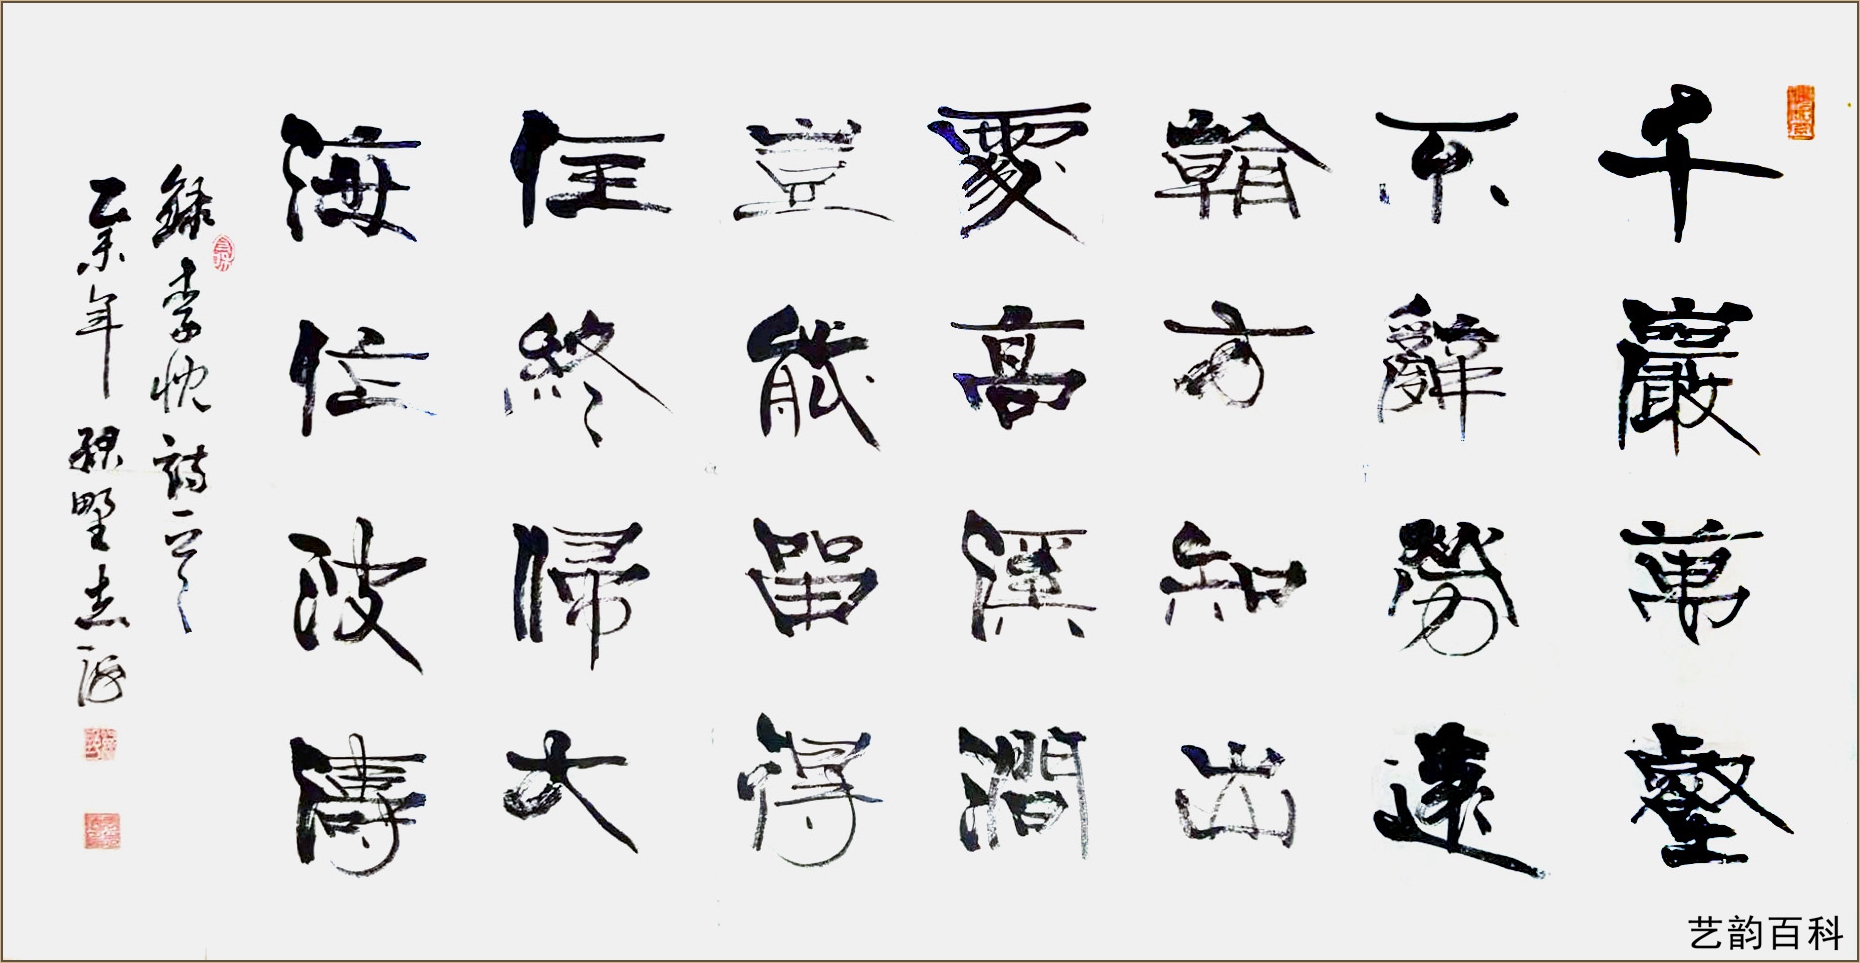 千巖萬壑
不辭勞遠
看方知出
處高溪澗
豈能留得
住終歸大
海作波濤
錄李忱詩一首
乙未年 野志
艺韵百科